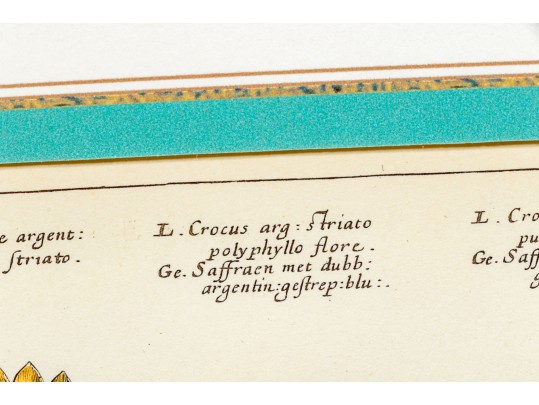 e argent:
striato.
L. Crocus arg: striato
polyphyllo flore.
Ge. Saffraen met dubb:
argentin:gestrep:blu:.
L. Cro
pu
Ge. Saff